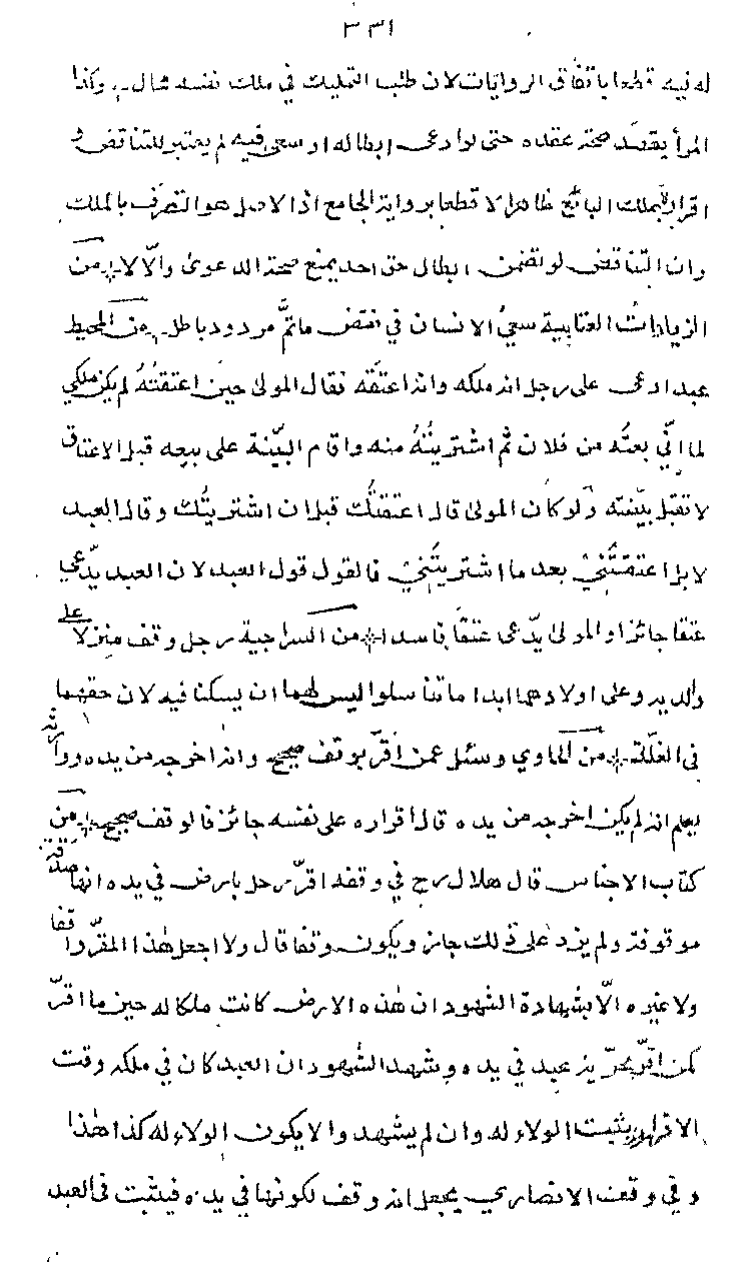 ٣٣١
له فيه قطعا باتفاق الروايات لان طلب التمليك في ملك نفسه محال وكذا
المرأ يقصد صحة عقده حتى لو ادعى ابطاله او سعى فيه لم يعتبر للتناقض و
اقراره بملك البائع ظاهرا لا قطعا برواية الجامع اذ الاصل هو التصرف بالملك
وان التناقض لو تضمن ابطال حق احد يمنع صحة الدعوى والّا لا من
الزيادات العتابية سعيُ الانسان في نقض ما تمَّ مردود باطل من المحيط
عبد ادعى على رجل انه ملكه وانه اعتقه فقال المولى حين اعتقتُهُ لم يكن ملكي
لما انّي بعتُه من فلان ثم اشتريتُهُ منه واقام البيّنة على بيعه قبل الاعتاق
لا تقبل بيّنته ولو كان المولى قال اعتقتُك قبل ان اشتريتُك وقال العبد
لا بل اعتقتَنيْ بعد ما اشتريتَنيْ فالقول قول العبد لان العبد يدّعي
عتقا جائزا والمولى يدّعى عتقًا فاسدا من السراجية رجل وقف منزلا على
والديه وعلى اولادهما ابدا ما تناسلوا ليس لهما ان يسكنا فيه لان حقهما
في الغلّة من الحاوي وسئل عمن اقرّ بوقف صحيح وانه اخرجه من يده ووارثه
يعلم انه لم يكن اخرجه من يده قال اقراره على نفسه جائز فالوقف صحيح من
كتاب الاجناس قال هلال رح في وقفه اقرّ رجل بارض في يده انها صدقة
موقوفة ولم يزد على ذلك جاز ويكون وقفا قال ولا اجعل هذا المقرّ واقفا
ولا غيره الّا بشهادة الشهود ان هذه الارض كانت ملكا له حين ما اقرّ
كمن اقرّ بحرّية عبد في يده وشهد الشهود ان العبد كان في ملكه وقت
الاقرار يثبت الولاء له وان لم يشهد والا يكون الولاء له كذا هذا
وفي وقف الانصاري يجعل انه وقف لكونها في يده فيثبت في العبد